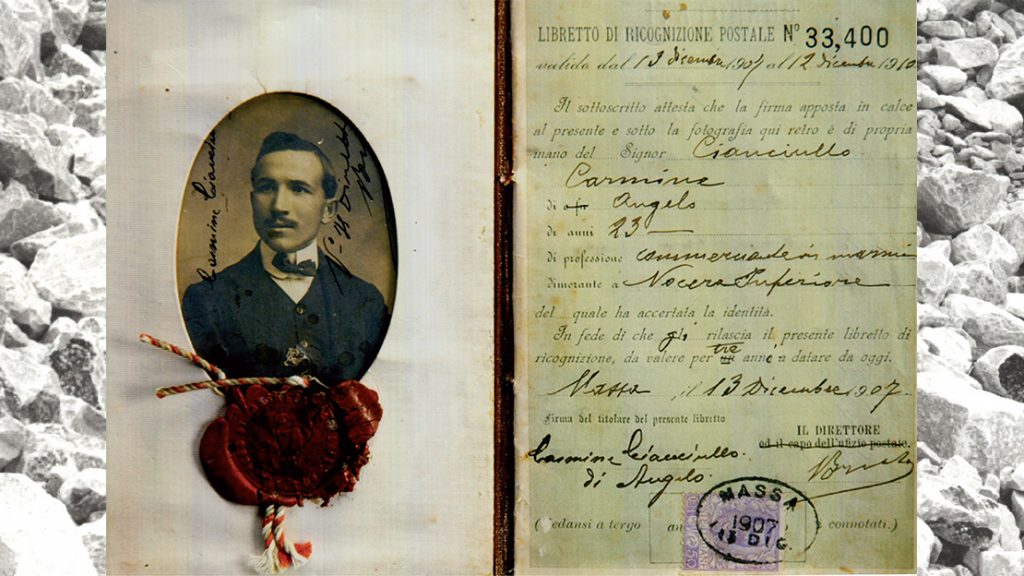 Carmine Cianciullo
LIBRETTO DI RICOGNIZIONE POSTALE Nº 33,400
valido dal 13 dicembre 1907 al 12 dicembre 1910
Il sottoscritto attesta che la firma apposta in calce
al presente e sotto la fotografia qui retro è di propria
mano del Signor Cianciullo
Carmine
di Angelo
di anni 23
di professione commerciante in marmi
dimorante a Nocera Inferiore
del quale ha accertata la identità.
In fede di che gli rilascia il presente libretto di
ricognizione, da valere per tre anni a datare da oggi.
Massa, il 13 Dicembre 1907
Firma del titolare del presente libretto
IL DIRETTORE
od il capo dell'ufizio postale.
Carmine Cianciullo
di Angelo.
MASSA
1907
13 DIC.
(Vedansi a tergo connotati.)